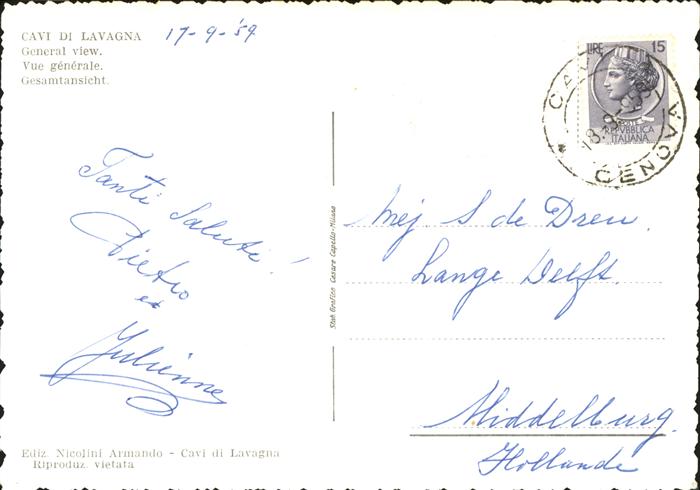 CAVI DI LAVAGNA
17-9-'59
General view.
Vue générale.
Gesamtansicht.
LIRE 15
POSTE
REPVBBLICA
ITALIANA
CAVI
GENOVA
Tanti Saluti!
Pietro
et
Julienne
Mej S de Dreu.
Lange Delft.
Middelburg.
Hollande
Stab Grafico Cesare Capello-Milano
Ediz. Nicolini Armando - Cavi di Lavagna
Riproduz. vietata